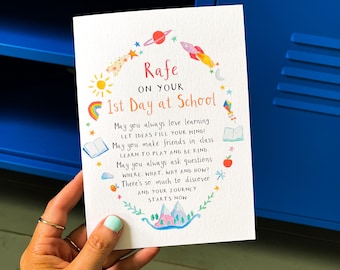 Rafe
ON YOUR
1st Day at School
May you always love learning
LET IDEAS FILL YOUR MIND!
May you make friends in class
LEARN TO PLAY AND BE KIND
May you always ask questions
WHERE, WHAT, WAY AND HOW?
There's so much to discover
AND YOUR JOURNEY
STARTS NOW